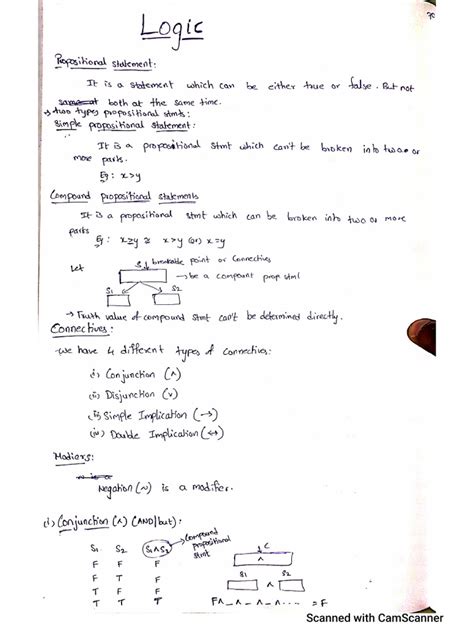 Logic
Propositional statement:
It is a statement which can be either true or false. But not
same at both at the same time.
→ two types propositional stmts:
Simple propositional statement:
It is a propositional stmt which can't be broken into two or
more parts.
Eg: x>y
Compound propositional statements
It is a propositional stmt which can be broken into two or more
parts
Eg: x≥y ≅ x>y (or) x=y
Let
S breakable point or Connectives
→ be a compount prop stml
S1 S2
→ Truth value of compound stmt can't be determined directly.
Connectives:
we have 4 different types of connectives:
(i) Conjunction (∧)
(ii) Disjunction (∨)
(iii) Simple Implication (→)
(iv) Double Implication (↔)
Modiers:
Negation (~) is a modifier.
(i) Conjunction (∧) (AND/but):
S1 S2 S1∧S2 → Compound propositional stmt
F F F
F T F
T F F
T T T
C
∧
S1 S2
∧
F∧_∧_∧_∧.... = F
Scanned with CamScanner